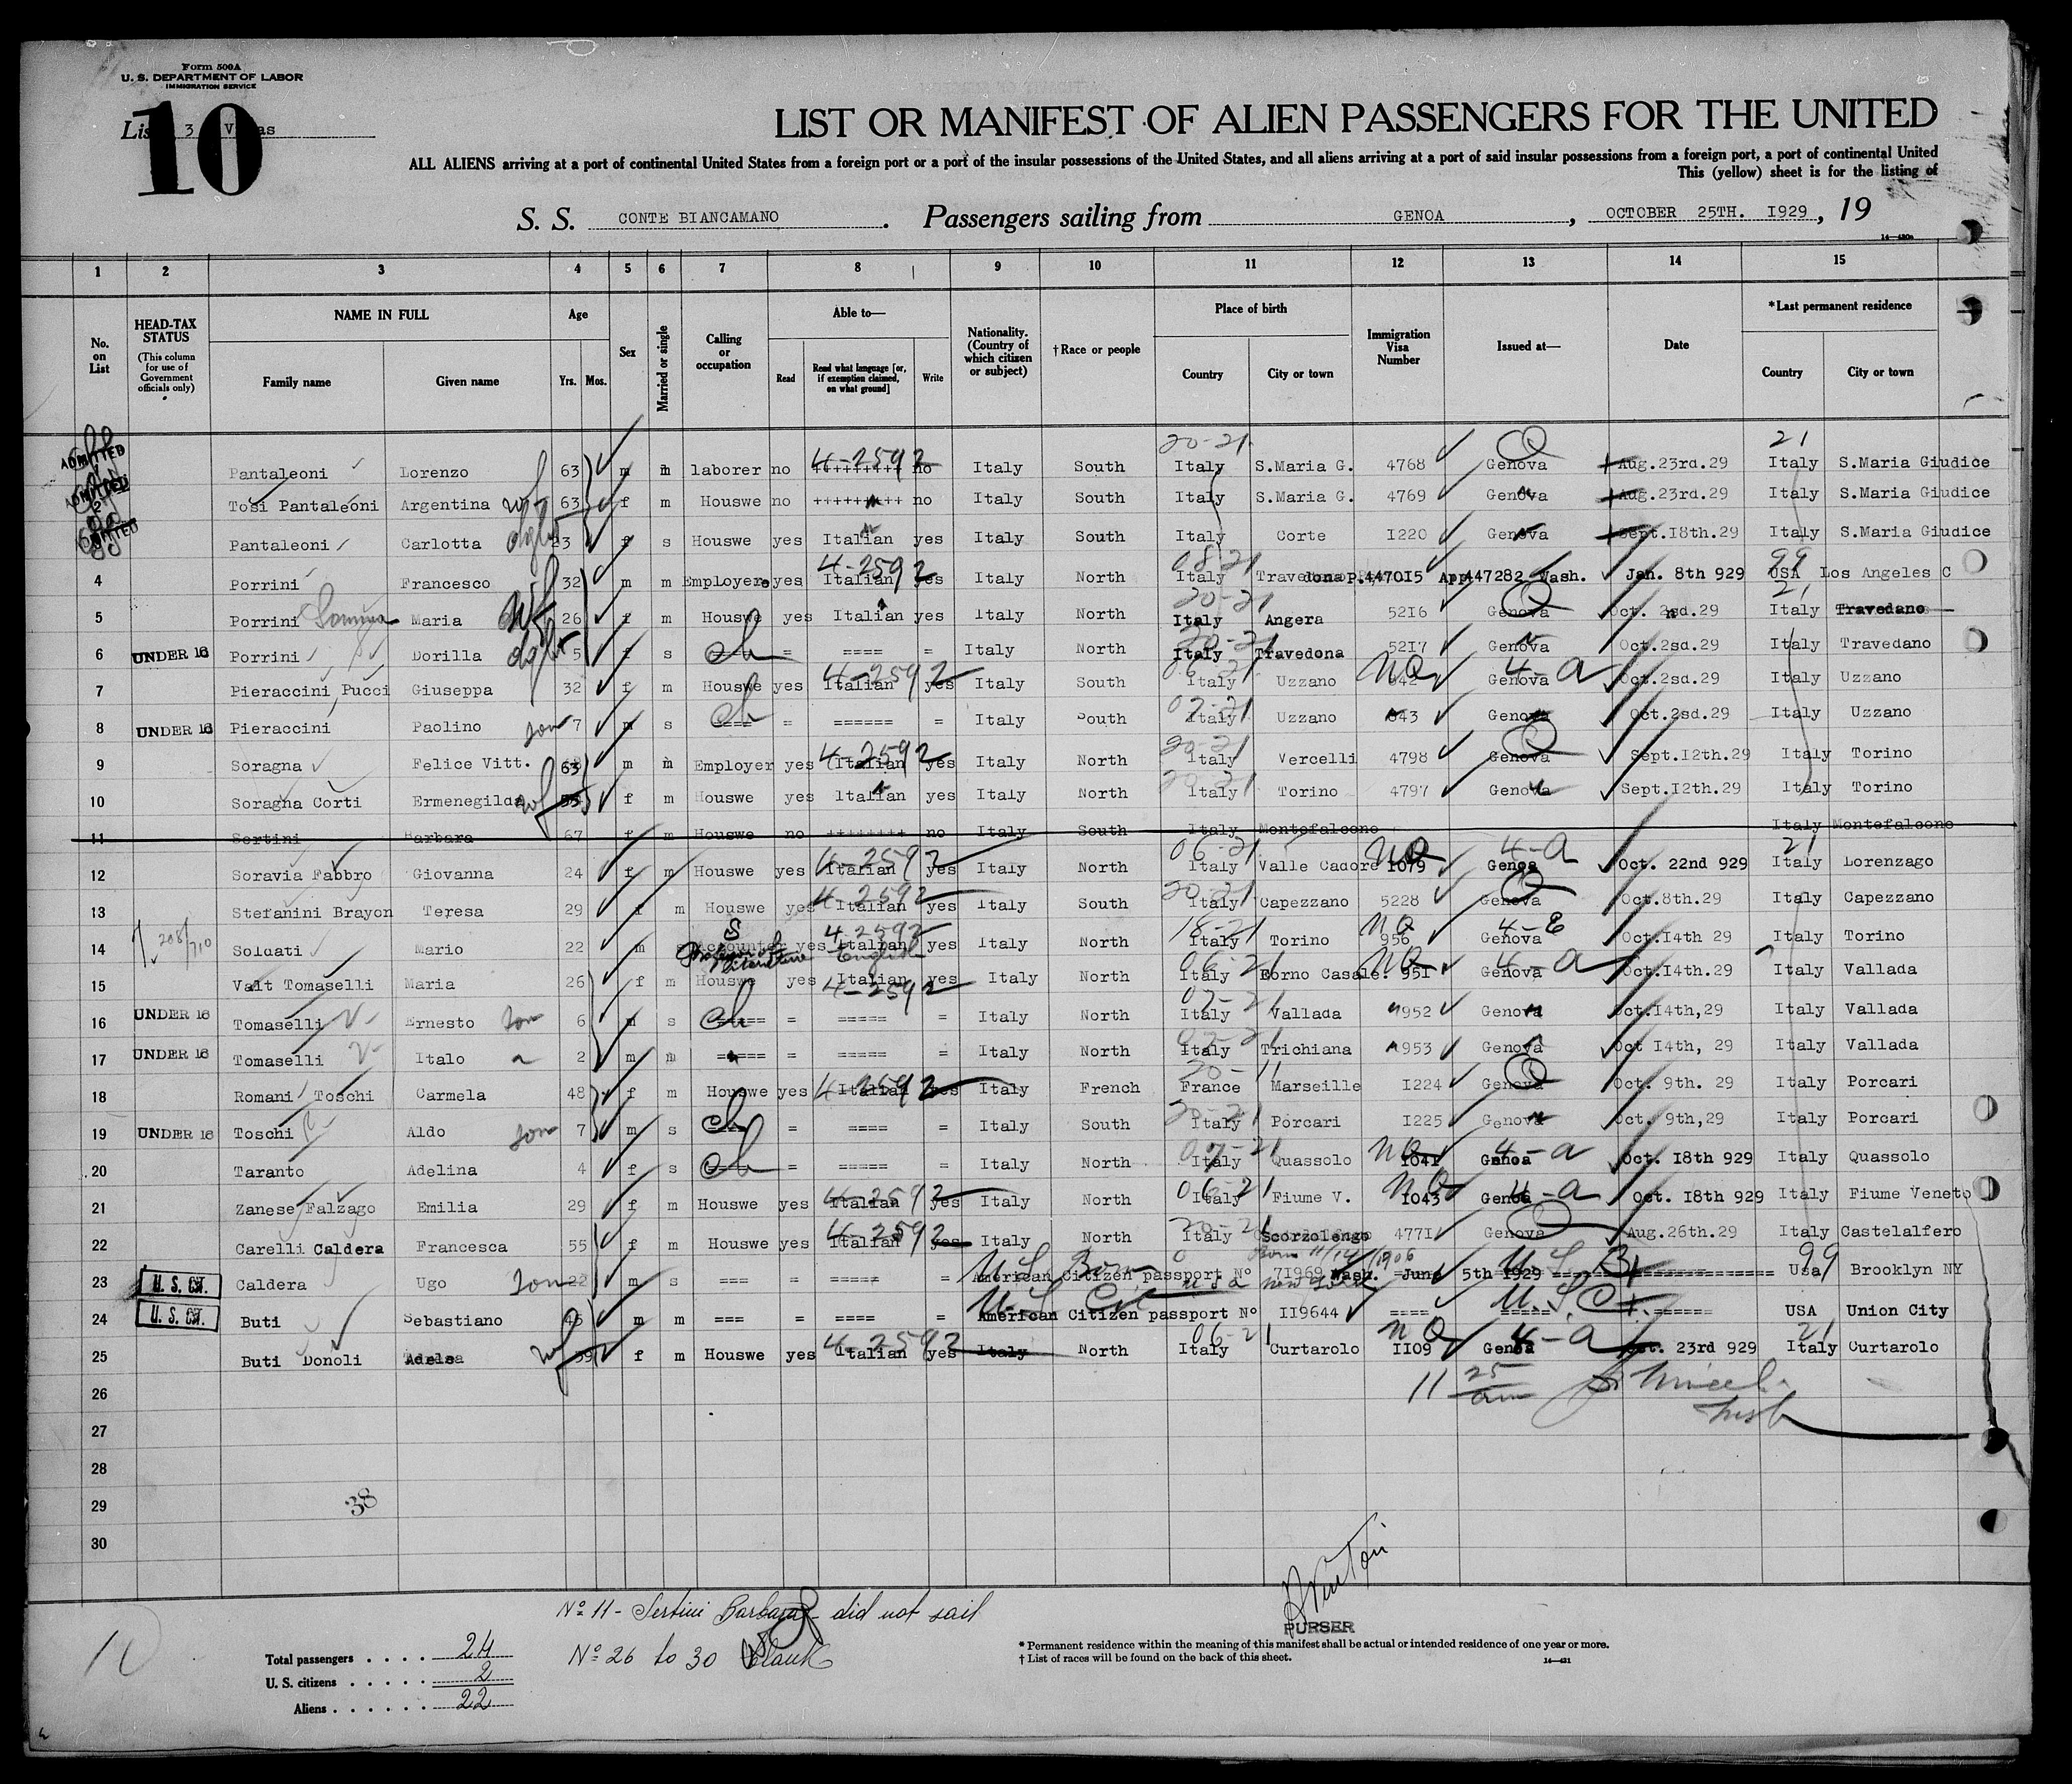 Form 500A
U. S. DEPARTMENT OF LABOR
IMMIGRATION SERVICE
10
List 3
LIST OR MANIFEST OF ALIEN PASSENGERS FOR THE UNITED
ALL ALIENS arriving at a port of continental United States from a foreign port or a port of the insular possessions of the United States, and all aliens arriving at a port of said insular possessions from a foreign port, a port of continental United
This (yellow) sheet is for the listing of
S. S. CONTE BIANCAMANO. Passengers sailing from GENOA, OCTOBER 25TH. I929, 19
1 2 3 4 5 6 7 8 9 10 11 12 13 14 15
No. on List
HEAD-TAX STATUS (This column for use of Government officials only)
NAME IN FULL Family name Given name
Age Yrs. Mos.
Sex
Married or single
Calling or occupation
Able to— Read Read what language [or, if exemption claimed, on what ground] Write
Nationality. (Country of which citizen or subject)
†Race or people
Place of birth Country City or town
Immigration Visa Number
Issued at—
Date
*Last permanent residence Country City or town
20-21 21
ADMITTED Pantaleoni Lorenzo 63 m m laborer no 4-2592 no Italy South Italy S.Maria G. 4768 Genova Aug.23rd.29 Italy S.Maria Giudice
ADMITTED Tosi Pantaleoni Argentina wf 63 f m Houswe no no Italy South Italy S.Maria G. 4769 Genova Aug.23rd.29 Italy S.Maria Giudice
ADMITTED Pantaleoni Carlotta 23 f s Houswe yes Italian yes Italy South Italy Corte I220 Genova Sept.I8th.29 Italy S.Maria Giudice
4 Porrini Francesco 32 m m Employer yes Italian 4-2592 yes Italy North Italy P.447015 App447282 Wash. Jan. 8th 929 USA 99 Los Angeles C
5 Porrini Maria wf 26 f m Houswe yes Italian yes Italy North Italy Angera 52I6 Genova Oct. 2sd.29 Italy Travedano
6 UNDER 16 Porrini Dorilla 5 f s ch = ==== = Italy North Italy Travedona 52I7 Genova Oct.2sd.29 Italy Travedano
7 Pieraccini Pucci Giuseppa 32 f m Houswe yes Italian 4-2592 yes Italy South Italy Uzzano Genova 4-a Oct.2sd.29 Italy Uzzano
8 UNDER 16 Pieraccini Paolino son 7 m s ch = ====== = Italy South Italy Uzzano Genova Oct.2sd.29 Italy Uzzano
9 Soragna Felice Vitt. 63 m m Employer yes Italian 4-2592 yes Italy North Italy Vercelli 4798 Genova Sept.I2th.29 Italy Torino
10 Soragna Corti Ermenegilda wf f m Houswe yes Italian yes Italy North Italy Torino 4797 Genova Sept.I2th.29 Italy Torino
11 Sertini Barbara 67 f m Houswe no no Italy South Italy Montefalcone Italy Montefalcone
12 Soravia Fabbro Giovanna 24 f m Houswe yes Italian 4-2592 yes Italy North Italy 06-21 Valle Cadore 1079 Genoa 4-a Oct. 22nd 929 Italy 21 Lorenzago
13 Stefanini Brayon Teresa 29 f m Houswe yes Italian 4-2592 yes Italy South Italy 20-21 Capezzano 5228 Genova Oct.8th.29 Italy Capezzano
14 Soldati Mario 22 m s Accounter yes Italian English 4-2592 yes Italy North Italy 18-21 Torino 956 Genova Oct.I4th 29 Italy Torino
15 Valt Tomaselli Maria 26 f m Houswe yes Italian 4-2592 yes Italy North Italy 95I Genova 4-a Oct.I4th.29 Italy Vallada
16 UNDER 16 Tomaselli Ernesto son 6 m s ch = ===== = Italy North Italy Vallada 952 Genova Oct.I4th,29 Italy Vallada
17 UNDER 16 Tomaselli Italo 2 m m ===== = ===== = Italy North Italy Trichiana 953 Genova Oct I4th, 29 Italy Vallada
18 Romani Toschi Carmela 48 f m Houswe yes Italian 4-2592 yes Italy French France Marseille I224 Genova Oct. 9th. 29 Italy Porcari
19 UNDER 16 Toschi Aldo son 7 m s ch = ==== = Italy South Italy 20-21 Porcari I225 Genova Oct. 9th,29 Italy Porcari
20 Taranto Adelina 4 f s ch = ===== = Italy North Italy Quassolo 1041 Genoa 4-a Oct. I8th 929 Italy Quassolo
21 Zanese Falzago Emilia 29 f m Houswe yes Italian 4-2592 yes Italy North Italy 06-21 Fiume V. I043 Genoa 4-a Oct. I8th 929 Italy Fiume Veneto
22 Carelli Caldera Francesca 55 f m Houswe yes Italian 4-2592 yes Italy North Italy Scorzolengo 477I Genova Aug.26th.29 Italy Castelalfero
23 U. S. CIT. Caldera Ugo son 22 m s === = ===== = American Citizen passport Nº 7I969 Wash. June 5th 1929 Usa 99 Brooklyn NY
24 U. S. CIT. Buti Sebastiano m m === = ==== = American Citizen passport Nº II9644 ==== ===== ====== USA Union City
25 Buti Donoli wf 39 f m Houswe yes Italian 4-2592 yes Italy North Italy 06-21 Curtarolo II09 Genoa 4-a Oct. 23rd 929 Italy 21 Curtarolo
26 11 25 am
27
28
29
30
38
Nº 11 - Sertini Barbara - did not sail
Nº 26 to 30 blank
10
Total passengers . . . . 24
U. S. citizens . . . . . 2
Aliens . . . . . . 22
PURSER
* Permanent residence within the meaning of this manifest shall be actual or intended residence of one year or more.
† List of races will be found on the back of this sheet.